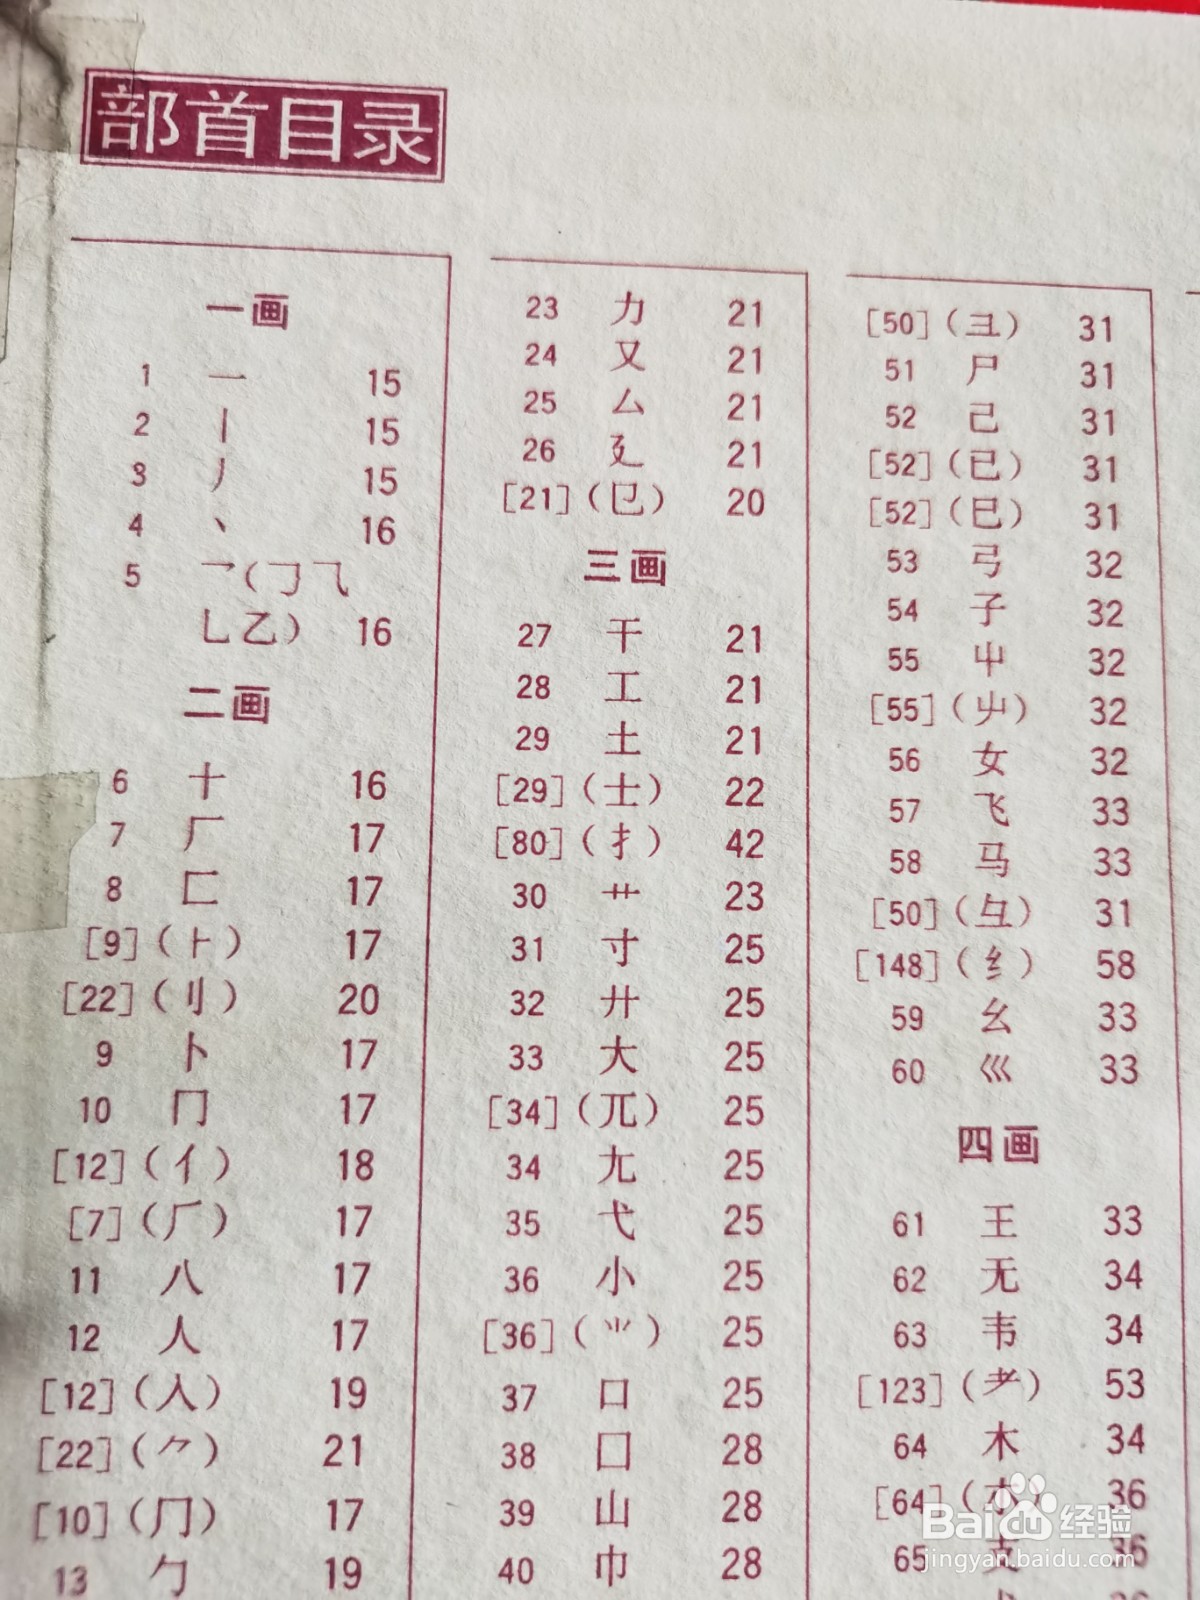 部首目录
一画
1 一 15
2 丨 15
3 丿 15
4 丶 16
5 乛(𠃌⺄
乚乙) 16
二画
6 十 16
7 厂 17
8 匚 17
[9] (⺊) 17
[22] (刂) 20
9 卜 17
10 冂 17
[12] (亻) 18
[7] (𠂆) 17
11 八 17
12 人 17
[12] (入) 19
[22] (⺈) 21
[10] (⺆) 17
13 勹 19
23 力 21
24 又 21
25 厶 21
26 廴 21
[21] (㔾) 20
三画
27 干 21
28 工 21
29 土 21
[29] (士) 22
[80] (扌) 42
30 艹 23
31 寸 25
32 廾 25
33 大 25
[34] (兀) 25
34 尢 25
35 弋 25
36 小 25
[36] (⺌) 25
37 口 25
38 囗 28
39 山 28
40 巾 28
[50] (彐) 31
51 尸 31
52 己 31
[52] (已) 31
[52] (巳) 31
53 弓 32
54 子 32
55 屮 32
[55] (屮) 32
56 女 32
57 飞 33
58 马 33
[50] (彑) 31
[148] (纟) 58
59 幺 33
60 巛 33
四画
61 王 33
62 无 34
63 韦 34
[123] (耂) 53
64 木 34
[64] (朩) 36
65 支 36
Baidu经验
jingyan.baidu.com